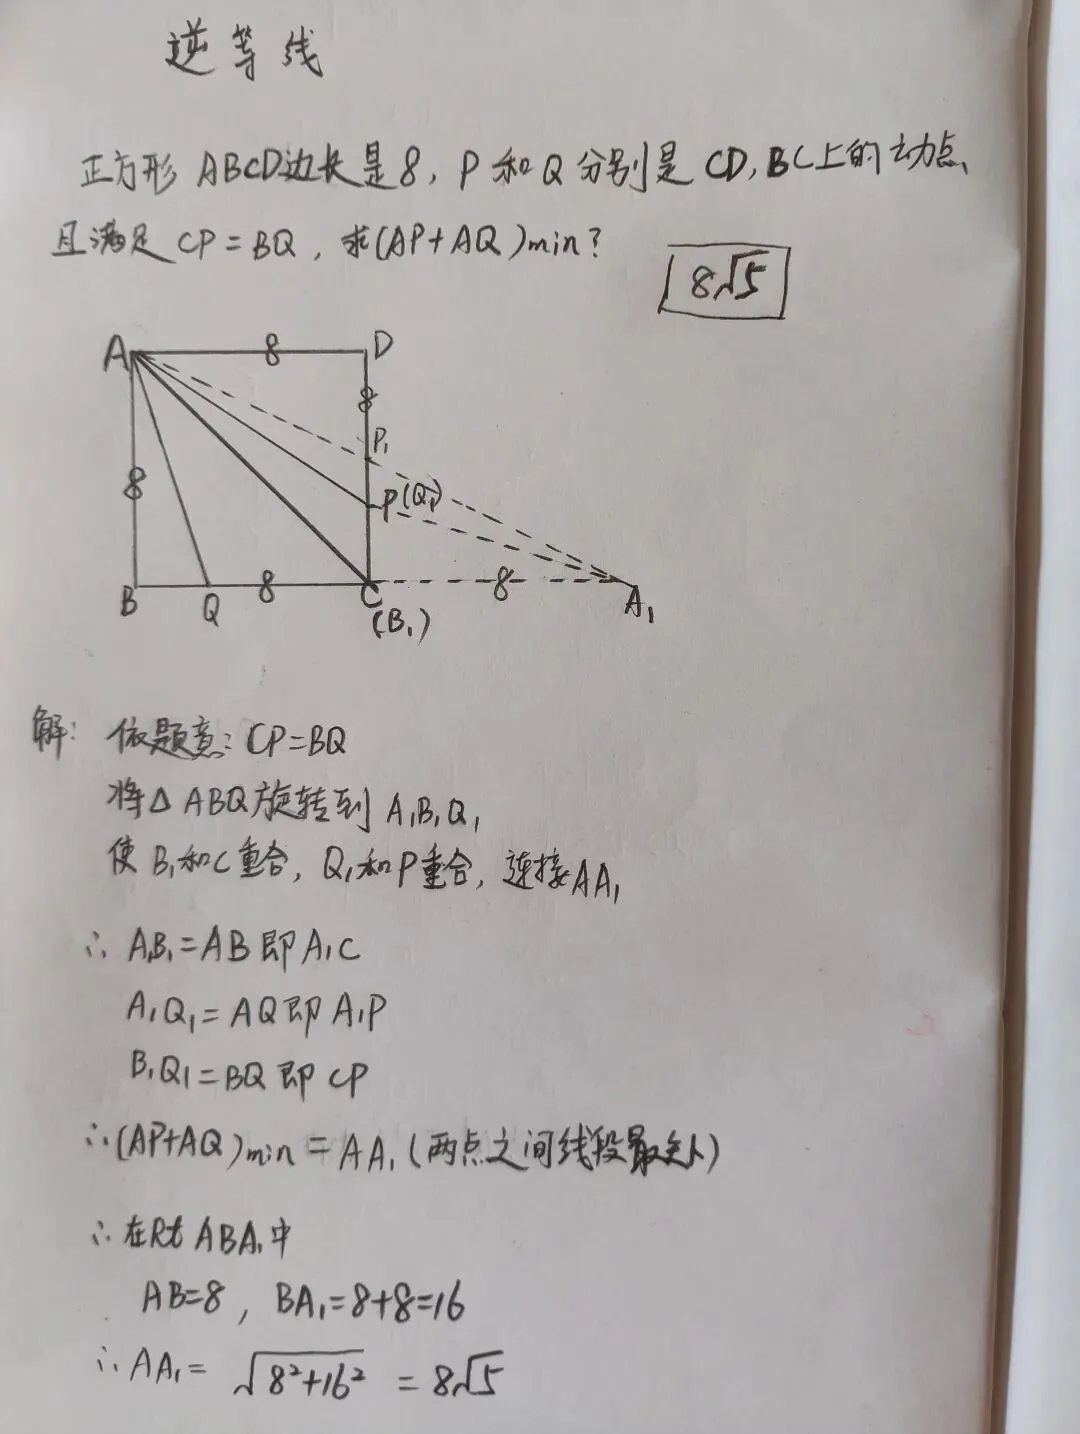 逆等线
正方形 ABCD边长是8, P和Q分别是 CD, BC上的动点、
且满足 CP=BQ, 求(AP+AQ)min?
8√5
A 8 D
8
P₁
8
P(Q₁)
B Q 8 C 8 A₁
(B₁)
解: 依题意: CP=BQ
将△ABQ旋转到 A₁B₁Q₁
使 B₁和C重合, Q₁和P重合, 连接AA₁
∴ A₁B₁=AB 即A₁C
A₁Q₁=AQ即A₁P
B₁Q₁=BQ 即 CP
∴(AP+AQ)min = AA₁(两点之间线段最短)
∴在Rt ABA₁中
AB=8, BA₁=8+8=16
∴AA₁= √8²+16² = 8√5